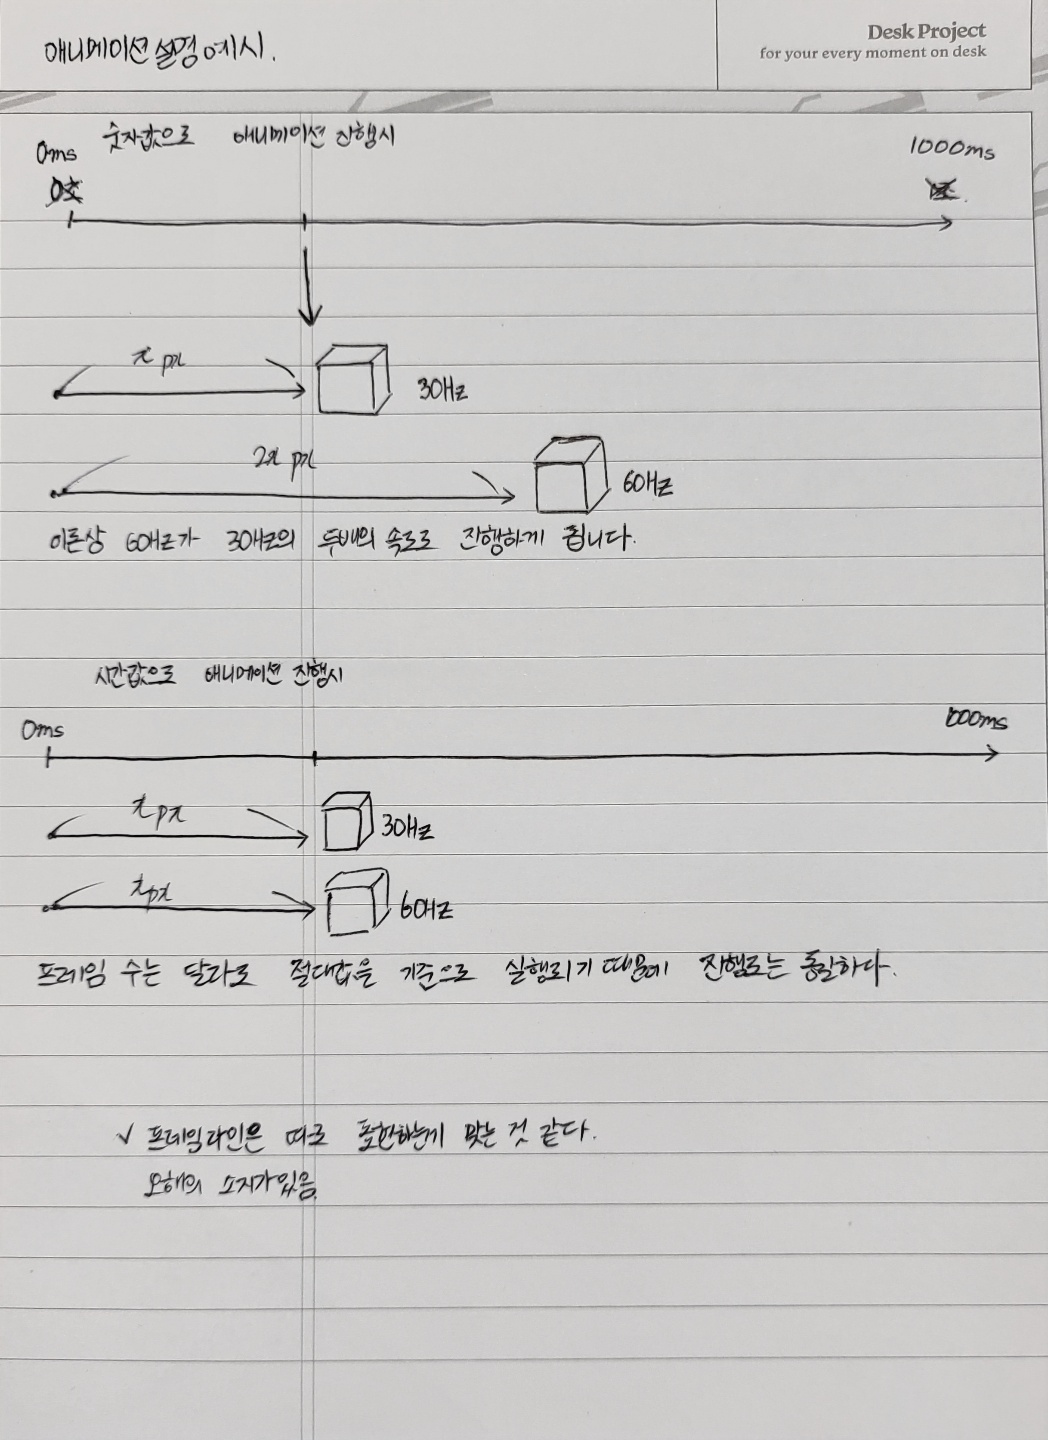 Desk Project
for your every moment on desk
애니메이션 설명 예시.
숫자값으로 애니메이션 진행시
0ms
1000ms
x px
30Hz
2x px
60Hz
이론상 60Hz가 30Hz의 두배의 속도로 진행하게 됩니다.
시간값으로 애니메이션 진행시
0ms
1000ms
x px
30Hz
x px
60Hz
프레임 수는 달라도 절대값을 기준으로 실행되기 때문에 진행도는 동일하다.
✓ 프레임라인은 따로 표현하는게 맞는 것 같다.
오해의 소지가 있음.